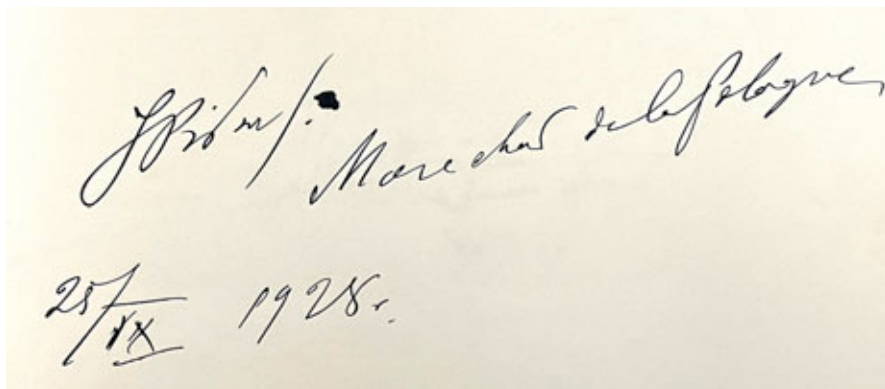 JPiłsudski Marechal de la Pologne
25/IX 1928r.